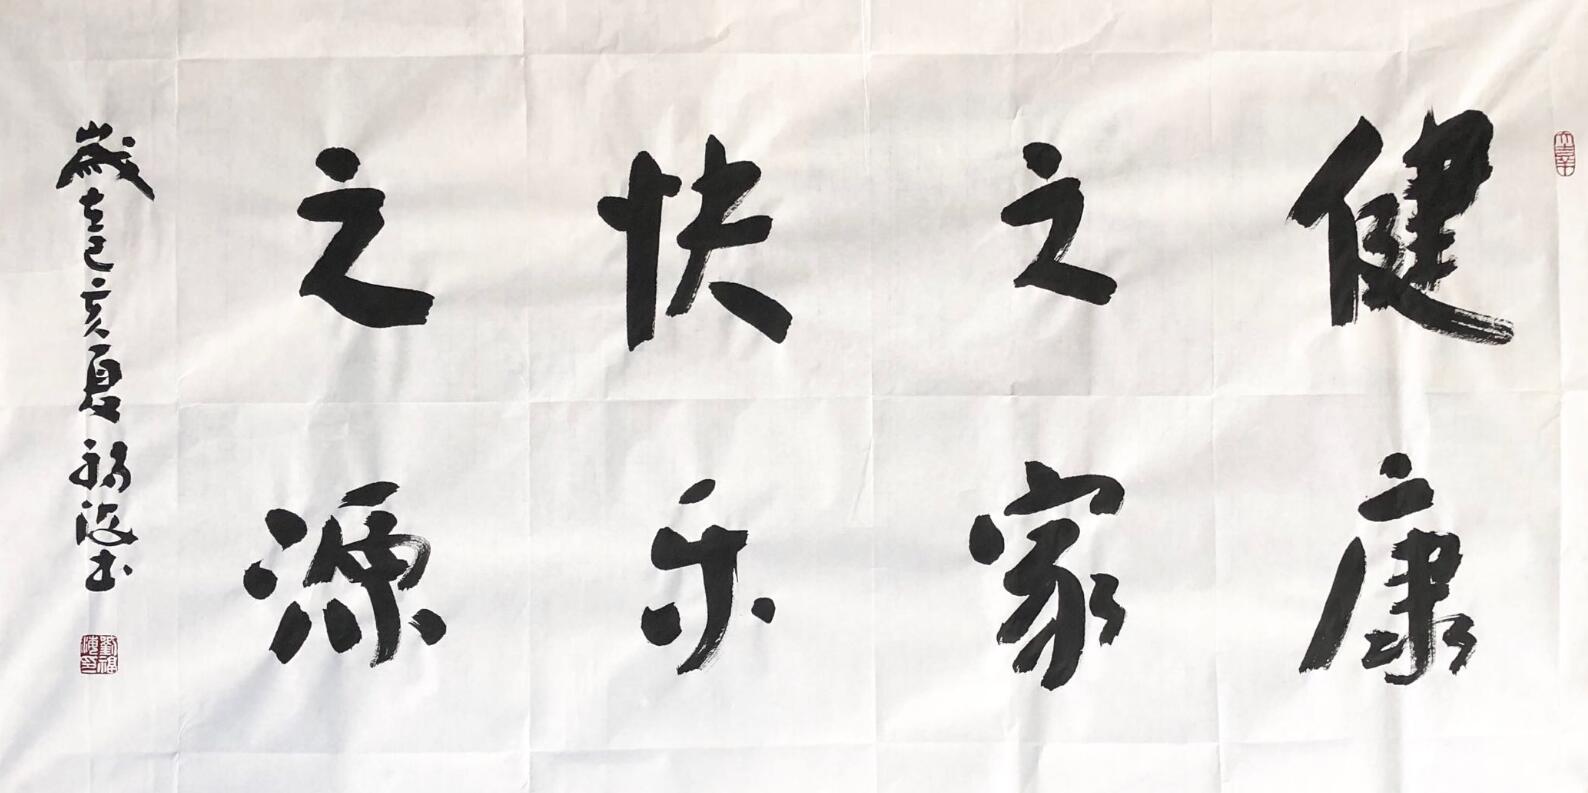 健康
之家
快乐
之源
岁在己亥夏福海书